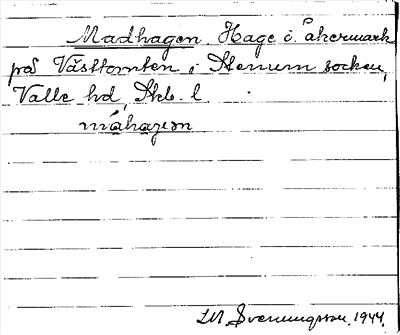 Madhagen. Hage i åkermark
på Västtomten, i Stenum socken,
Valle hd, Skb. l.
máhagen
Svenungsson. 1944.